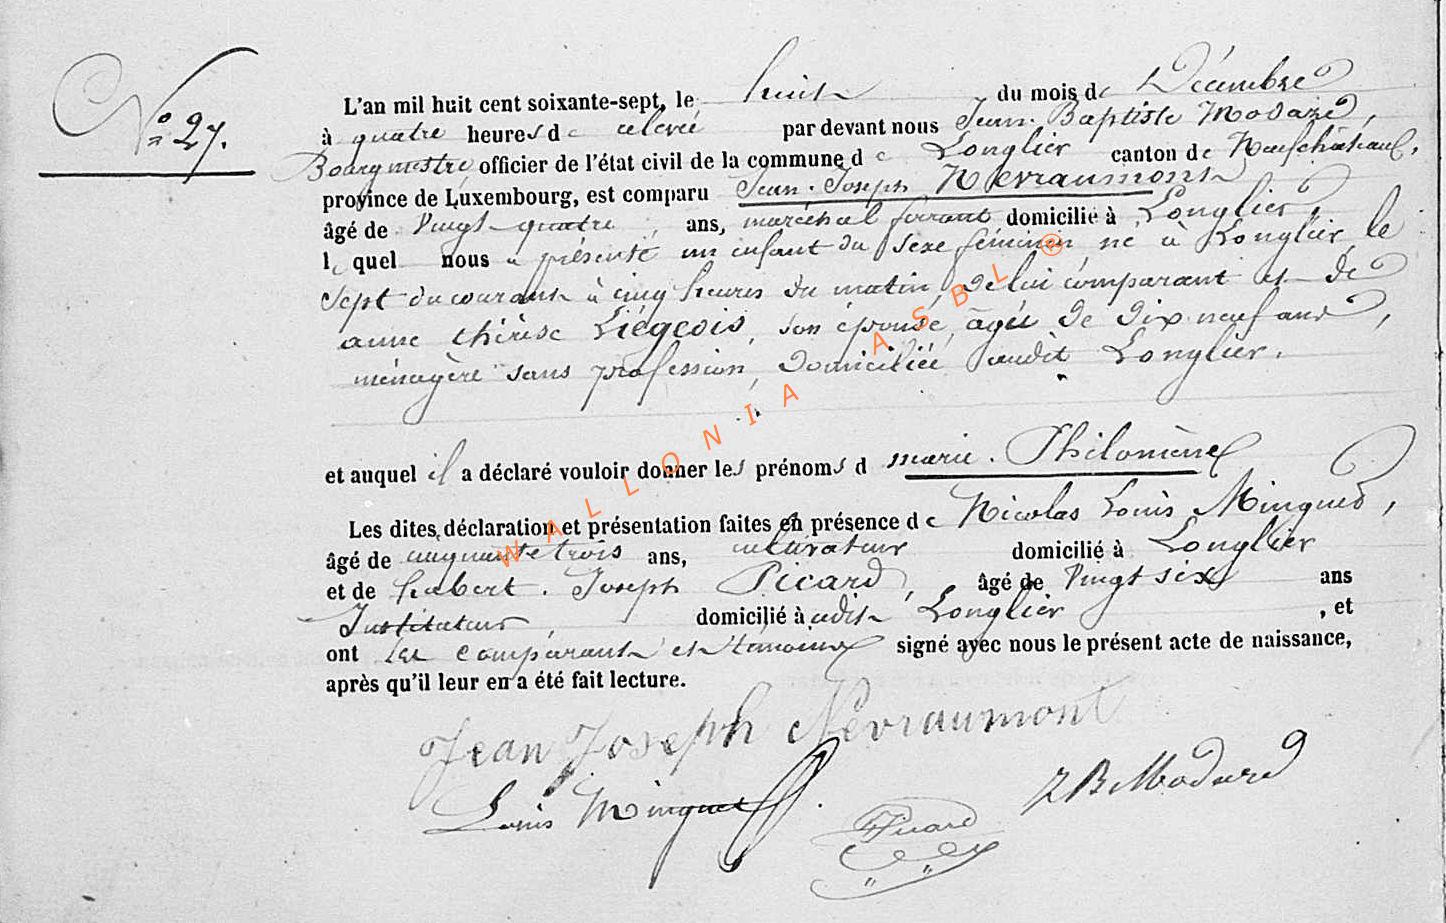 N° 27.
L'an mil huit cent soixante-sept, le huit du mois de Décembre
à quatre heures de relevée par devant nous Jean Baptiste Modard,
Bourgmestre officier de l'état civil de la commune de Longlier canton de Neufchâteau,
province de Luxembourg, est comparu Jean Joseph Nevraumont
âgé de Vingt quatre ans, maréchal ferrant domicilié à Longlier,
lequel nous a présenté un enfant du sexe féminin, né à Longlier le
sept du courant à cinq heures du matin, de lui comparant et de
anne thérèse Liégeois, son épouse, agée de dix neuf ans,
ménagère sans profession, domiciliée audit Longlier.
et auquel il a déclaré vouloir donner les prénoms d marie Philomène
Les dites déclaration et présentation faites en présence de Nicolas Louis Minguet,
âgé de cinquante trois ans, cultivateur domicilié à Longlier
et de hubert Joseph Picard, âgé de Vingt six ans
Instituteur, domicilié à udit Longlier, et
ont les comparant et témoins signé avec nous le présent acte de naissance,
après qu'il leur en a été fait lecture.
Jean Joseph Névraumont
Louis Minguet
JB Modard
Picard
WALLONIA ASBL ®